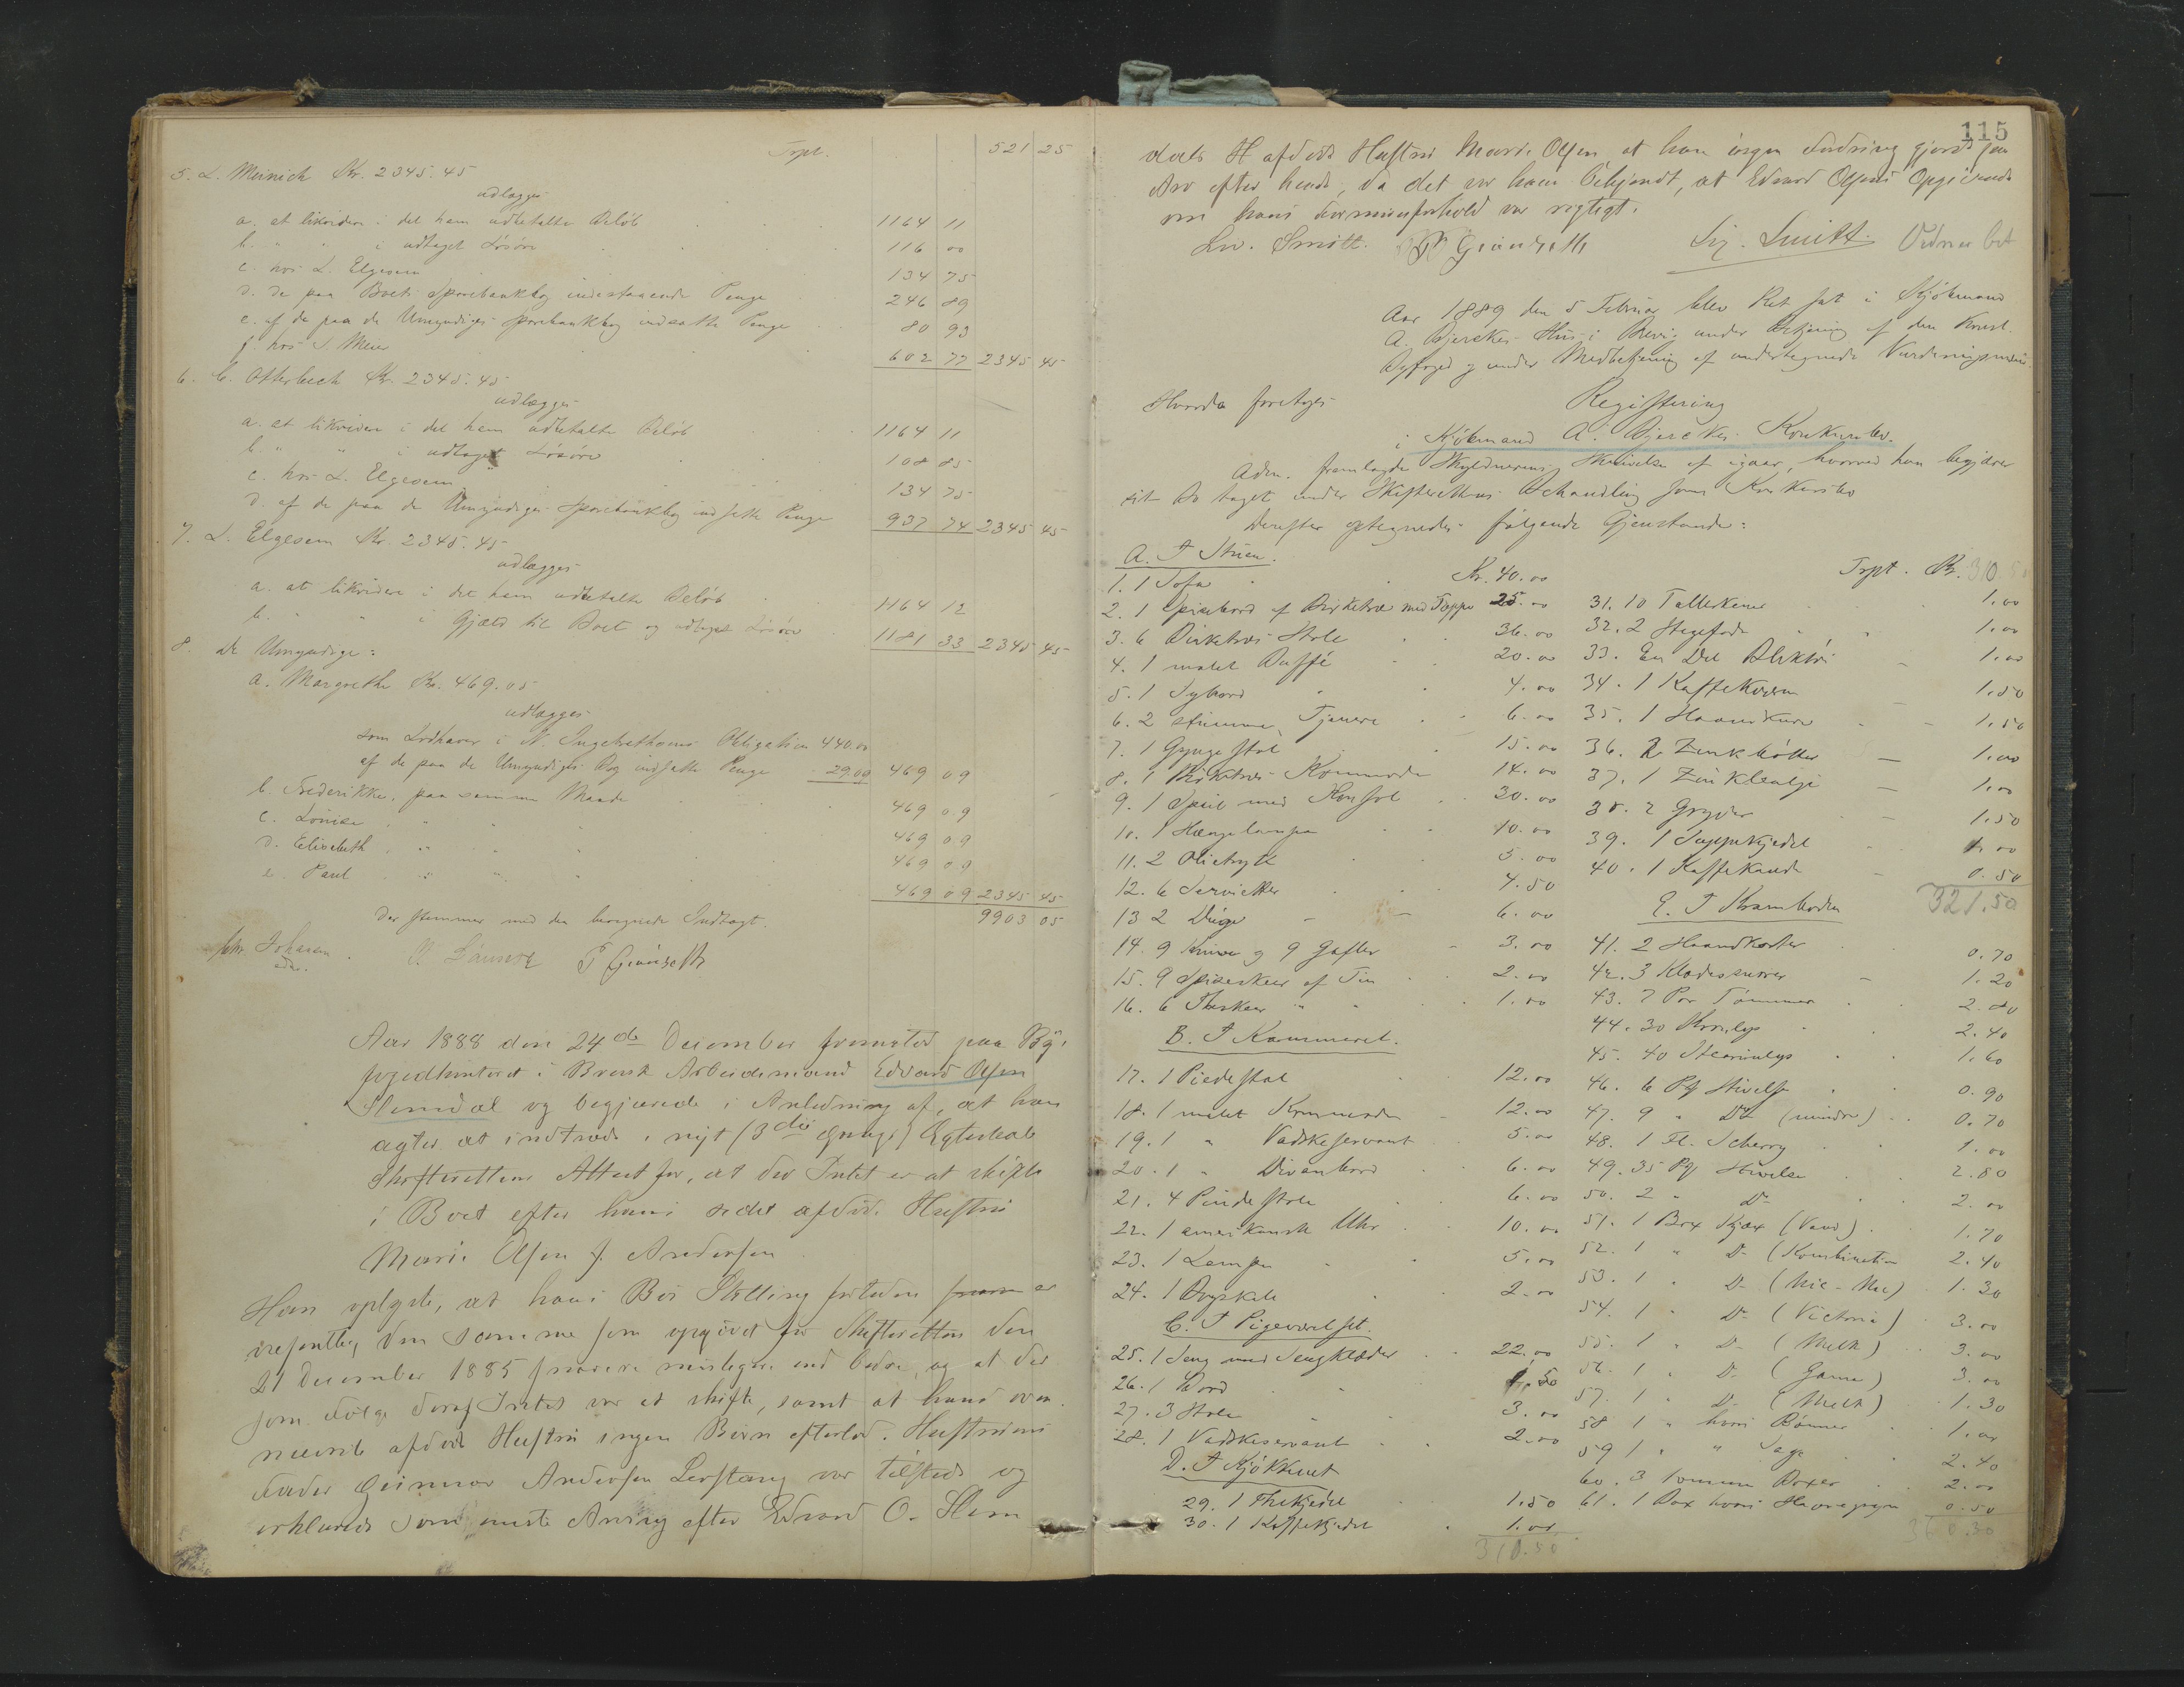 Trpt. 521 25
5. L. Meinich Kr. 2345.45
udlægges
a. at likvidere i det ham udbetalte Beløb 1164 11
b. " " i udtaget Løsøre 116 00
c. hos L. Elgesem 134 75
d. de paa Boets Sparebankbog indestaaende Penge 246 89
e. af de paa de Umyndiges Sparebankbog indsatte Penge 80 93
f. hos S. Meier 602 77 2345 45
6. C. Otterbech Kr. 2345.45
udlægges
a. at likvidere i det ham udbetalte Beløb 1164 11
b. " " i udtaget Løsøre 108 85
c. hos L. Elgesem 134 75
d. af de paa de Umyndiges Sparebankbog indsatte Penge 937 74 2345 45
7. L. Elgesem Kr. 2345.45
udlægges
a. at likvidere i det ham udbetalte Beløb 1164 12
b. " " i Gjæld til Boet og udtaget Løsøre 1181 33 2345 45
8. De Umyndige:
a. Margrethe Kr. 469.05
udlægges
som Lodhaver i N. Obligation 440.00
af de paa de Umyndiges Bog indsatte Penge 29.09 469 09
b. Frederikke, paa samme Maade 469 09
c. Lovise " " 469 09
d. Elisabeth " " 469 09
e. Paul " " 469 09 2345 45
9903 05
der stemmer med den beregnede Indtægt.
Johnsen P Grönseth
Aar 1888 den 24de December fremstod paa By-
fogedkontoret i Brevik Arbeidsmand Edvard Olsen
Slemdal og begjærede i Anledning af, at han
agter at indtræde i nyt (3die Gangs) Egteskab
Skifterettens Attest for, at der Intet er at skifte
i Boet efter hans sidst afdøde Hustru
Marie Olsen f. Andersen
Han oplyste, at hans Bos Stilling fortiden er
væsentlig den samme som opgivet for Skifteretten den
21 December 1885 snarere ringere end bedre, og at der
som Følge deraf Intet var at skifte, samt at hans oven-
nævnte afdøde Hustru ingen Børn efterlod. Hustruens
Fader Gunnar Andersen var tilstede og
erklærede som nærmeste Arving efter Edvard O. Slem
115
dals afdøde Hustru Marie Olsen at han ingen Fordring gjorde paa
Arv efter hende, da det var ham bekjendt, at Edvard Olsens Opgivende
om hans Formuesforhold var rigtigt.
Lw. Smitt. P Grönseth
Aar 1889 den 5 Februar blev Ret sat i Kjøbmand
A. Bjerckes Hus i Brevig under Betjening af den konst.
Byfoged og under Medbetjening af undertegnede Vurderingsmænd.
Hvorda foretoges
Registrering
i Kjøbmand A. Bjerckes Konkursbo.
Adm. fremlagde Skyldnerens Skrivelse af igaar, hvorved han begjærer
sit Bo taget under Skifterettens Behandling som Konkursbo
Derefter optegnedes følgende Gjenstande:
A. I Stuen.
1. 1 Sofa Kr. 40.00
2. 1 Spisebord af Birketræ med Tæppe 25.00
3. 6 Birketræs Stole 36.00
4. 1 malet Buffé 20.00
5. 1 Sybord 4.00
6. 2 stumme Tjenere 6.00
7. 1 Gyngestol 15.00
8. 1 Birketræs Kommode 14.00
9. 1 Speil med Konsol 30.00
10. 1 Hængelampe 10.00
11. 2 Olietryk 5.00
12. 6 Servietter 4.50
13 2 Duge 6.00
14. 9 Knive og 9 Gafler 3.00
15. 9 Spiseskeer af Tin 2.00
16. 6 Theskeer " 1.00
B. I Kammeret.
17. 1 Piedestal 12.00
18. 1 malet Kommode 12.00
19. 1 " Vadskeservant 5.00
20. 1 " Divanbord 6.00
21. 4 Pindestole 6.00
22. 1 amerikansk Uhr 10.00
23. 1 Lampe 5.00
24. 1 2.00
C. I Pigeværelset.
25. 1 Seng med Sengklæder 22.00
26. 1 Bord 1.50
27. 3 Stole 3.00
28. 1 Vadskeservant 2.00
D. I Kjøkkenet
29. 1 Thekjedel 1.50
30. 1 Kaffekjedel 1.00
310.50
Trpt. Kr. 310.50
31. 10 Tallerkener 1.00
32. 2 Stegefade 1.00
33. En Del Bliktøi 1.00
34. 1 Kaffekværn 1.50
35. 1 Haandkurv 1.50
36. 2 Zinkbøtter 1.00
37. 1 Zinkbalje 1.00
38. 2 Gryder 1.50
39. 1 Suppekjedel 1.00
40. 1 Kaffekande 0.50
321.50
E. I Kramboden
41. 2 Haandkoster 0.70
42. 3 Klædessnorer 1.20
43. 7 Par Tømmer 2.80
44. 30 2.40
45. 40 Stearinlys 1.60
46. 6 Pk Stivelse 0.90
47. 9 " Do (mindre) 0.70
48. 1 Fl. Scherry 1.00
49. 35 Pk Stivelse 2.80
50. 2 " Do 2.00
51. 1 Box Kjæx (Vand) 1.70
52. 1 " Do (Kombination 2.40
53. 1 " Do (Mic-Mac) 1.30
54. 1 " Do (Victoria) 3.00
55. 1 " Do (Melk) 3.00
56. 1 " Do 3.00
57. 1 " Do (Melk) 1.30
58 1 " hvori Bønner 1.00
59 1 " " Sago 2.40
60. 3 tomme Boxer 2.00
61. 1 Box hvori Havregryn 0.50
360.30